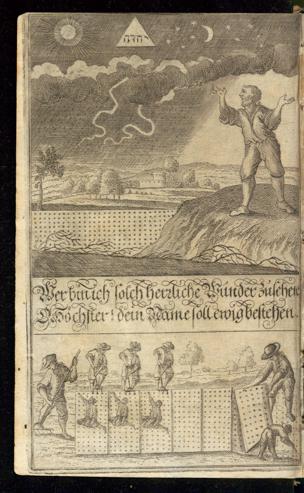 יהוה
Wer bin ich solch herzliche Wunder zusehen
O Höchster! dein Name soll ewig bestehen.